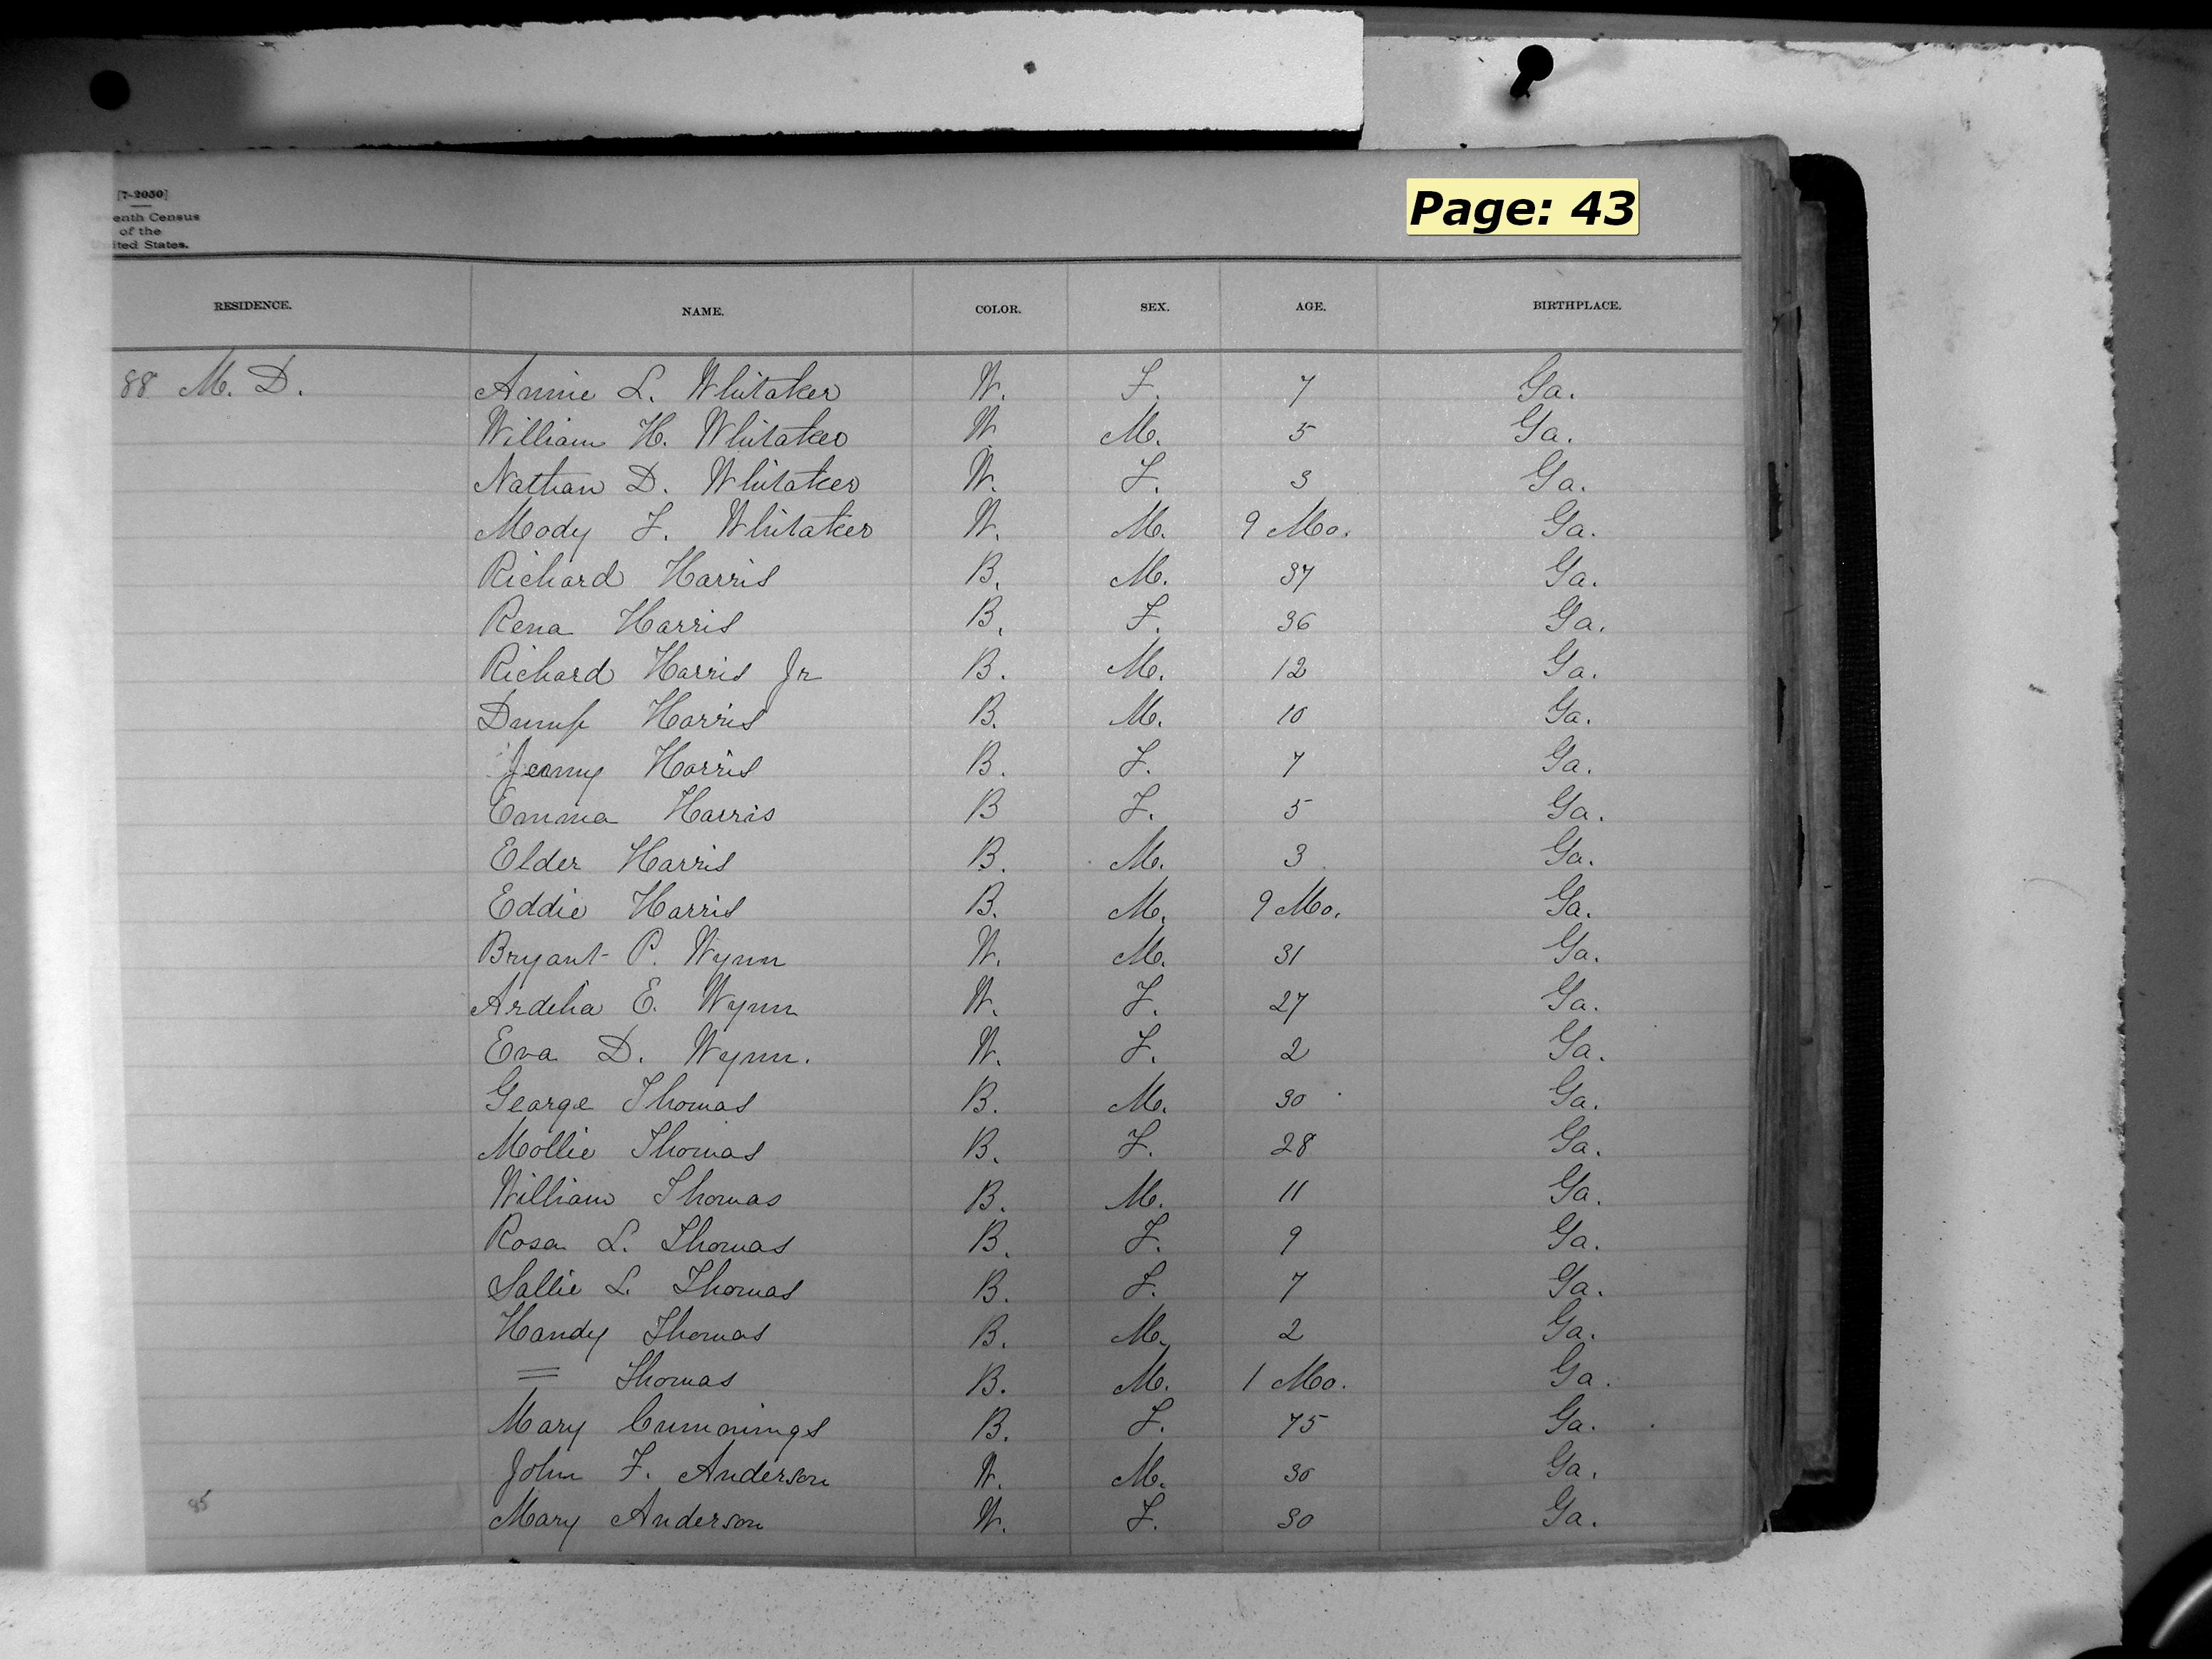 [7-2050]
enth Census
of the
United States.
Page: 43
RESIDENCE. NAME. COLOR. SEX. AGE. BIRTHPLACE.
88 M. D. Annie L. Whitaker W. F. 7 Ga.
William H. Whitaker W. M. 5 Ga.
Nathan D. Whitaker W. F. 3 Ga.
Mody F. Whitaker W. M. 9 Mo. Ga.
Richard Harris B. M. 37 Ga.
Rena Harris B. F. 36 Ga.
Richard Harris Jr B. M. 12 Ga.
Dump Harris B. M. 10 Ga.
Jeamy Harris B. F. 7 Ga.
Emma Harris B F. 5 Ga.
Elder Harris B. M. 3 Ga.
Eddie Harris B. M. 9 Mo. Ga.
Bryant P. Wynn W. M. 31 Ga.
Ardelia E. Wynn W. F. 27 Ga.
Eva D. Wynn. W. F. 2 Ga.
George Thomas B. M. 30 Ga.
Mollie Thomas B. F. 28 Ga.
William Thomas B. M. 11 Ga.
Rosa L. Thomas B. F. 9 Ga.
Sallie L. Thomas B. F. 7 Ga.
Handy Thomas B. M. 2 Ga.
= Thomas B. M. 1 Mo. Ga.
Mary Cummings B. F. 75 Ga.
John F. Anderson W. M. 30 Ga.
85 Mary Anderson W. F. 30 Ga.